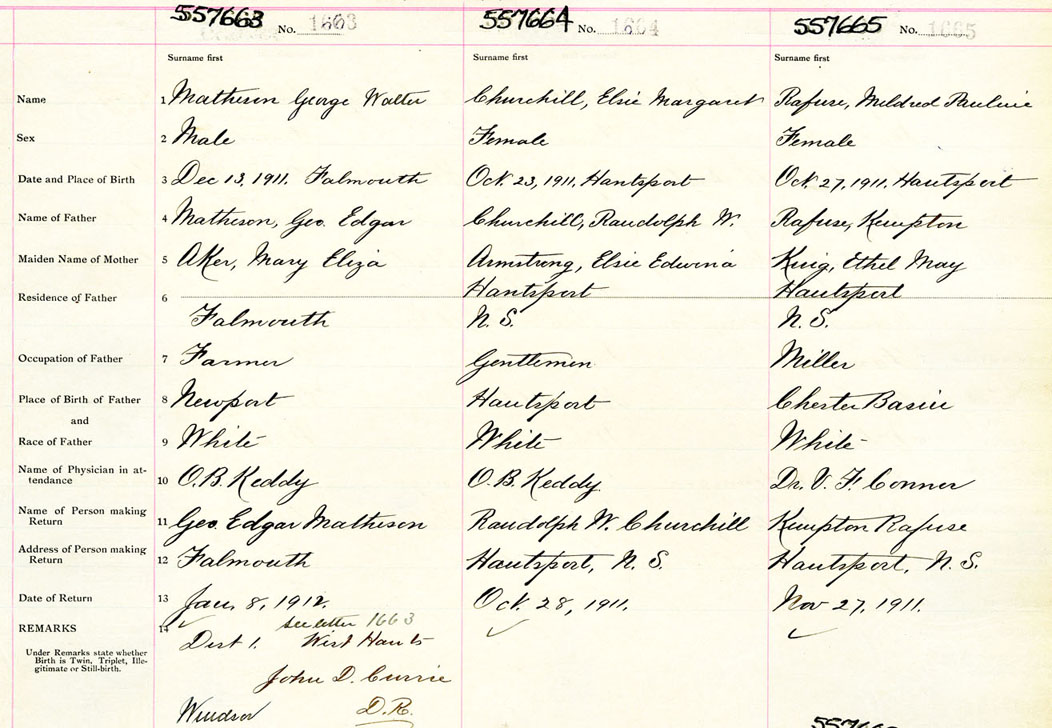 557663 No. 1663 557664 No. 1664 557665 No. 1665
Surname first Surname first Surname first
Name 1 Matheson George Walter Churchill, Elsie Margaret Rafuse, Mildred Pauline
Sex 2 Male Female Female
Date and Place of Birth 3 Dec 13, 1911. Falmouth Oct. 23, 1911, Hantsport Oct. 27, 1911, Hantsport
Name of Father 4 Matheson, Geo. Edgar Churchill, Randolph W. Rafuse, Kempton
Maiden Name of Mother 5 Aker, Mary Eliza Armstrong, Elsie Edwina King, Ethel May
Hantsport Hantsport
Residence of Father 6
Falmouth N. S. N. S.
Occupation of Father 7 Farmer Gentleman Miller
Place of Birth of Father 8 Newport Hantsport Chester Basin
and
Race of Father 9 White White White
Name of Physician in at-
tendance 10 O. B. Keddy O. B. Keddy Dr. V. F. Connor
Name of Person making
Return 11 Geo. Edgar Matheson Randolph W. Churchill Kempton Rafuse
Address of Person making
Return 12 Falmouth Hantsport, N. S. Hantsport, N. S.
Date of Return 13 Jan, 8, 1912. Oct. 28, 1911. Nov 27, 1911.
see letter 1663
REMARKS 14
Dist 1. West Hants
Under Remarks state whether
Birth is Twin, Triplet, Ille-
gitimate or Still-birth.
John D. Currie
Windsor D.R.